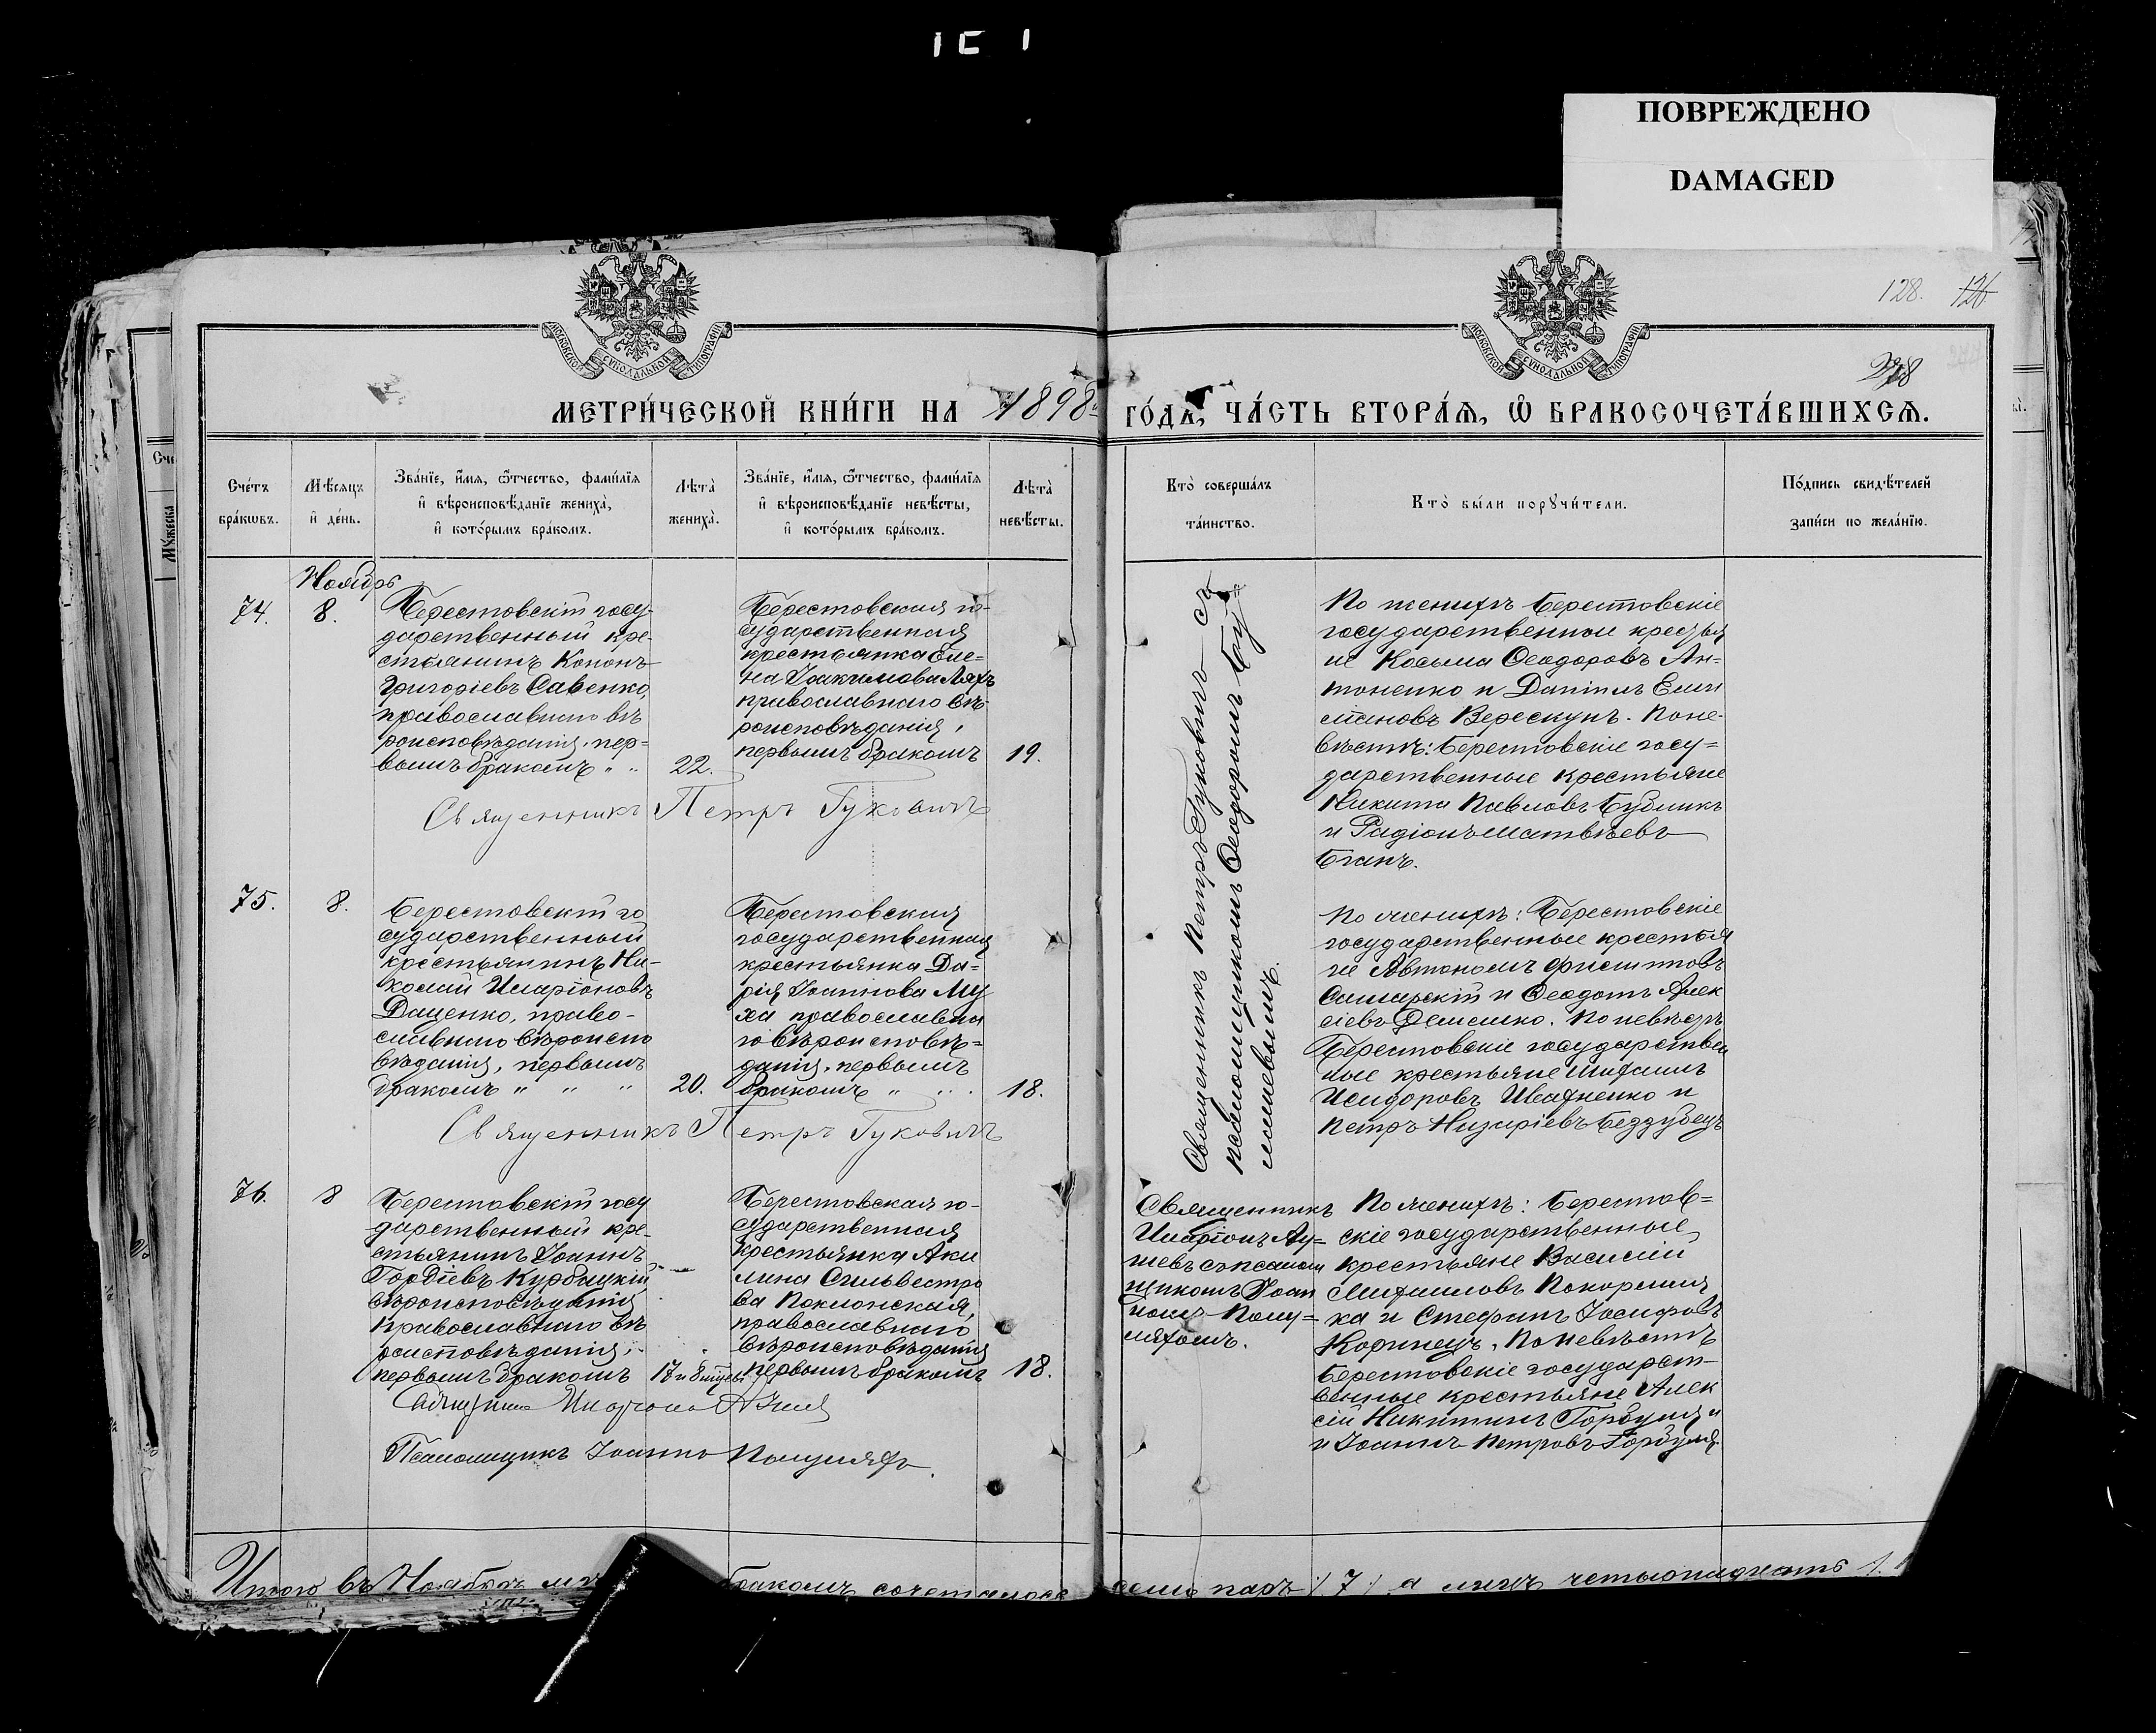 ПОВРЕЖДЕНО
DAMAGED
128. 126
МОСКОВСКОЙ СѴНОДАЛЬНОЙ ТИПОГРАФІИ
МОСКОВСКОЙ СѴНОДАЛЬНОЙ ТИПОГРАФІИ
МЕТРИ́ЧЕСКОЙ КНИ́ГИ НА 1898 ГО́ДА, ЧА́СТЬ ВТОРА́Ѧ, Ѽ БРАКОСОЧЕТА́ВШИХСѦ.
Сче́тъ
бра́кѡвъ.
Мѣ́сяцъ
и҆ де́нь.
Зва́нїе, и҆́мѧ, ѻ҆́тчество, фами́лїѧ
и҆ вѣроисповѣ́данїе жениха̀,
и҆ кото́рымъ бра́комъ.
Лѣ́та̀
жениха̀.
Зва́нїе, и҆́мѧ, ѻ҆́тчество, фами́лїѧ
и҆ вѣроисповѣ́данїе невѣ́сты,
и҆ кото́рымъ бра́комъ.
Лѣ́та̀
невѣ́сты.
Кто̀ соверша́лъ
та́инство.
Кто̀ бы́ли порꙋчи́тели.
По́дпись свидѣ́телей
за́писи по жела́нїю.
Ноябрь
74.
8.
Берестовскій госу-
дарственный кре-
стьянинъ Кононъ
Григоріевъ Савенко,
православнаго вѣ
роисповѣданія, пер=
вымъ бракомъ " "
22.
Берестовская го-
сударственная
крестьянка Еле=
на Іоакимова Ляхъ
православнаго вѣ-
роисповѣданія,
первымъ бракомъ
19.
Священникъ Петръ Гуковичъ
Священникъ Петръ Гуковичъ съ
псаломщикомъ Ѳеодоромъ
По женихѣ Берестовскіе
государственные крестья
не Косьма Ѳеодоровъ Ан=
тоненко и Даніилъ Емил
іановъ Верескунъ. По не-
вѣстѣ: Берестовскіе госу=
дарственные крестьяне
Никита Павловъ Бублик
и Радіонъ Матвѣевъ
75.
8.
Берестовскій го
сударственный
крестьянинъ Ни-
колай Иларіоновъ
Даценко, право-
славнаго вѣроиспо
вѣданія, первымъ
бракомъ " " "
20.
Берестовская
государственная
крестьянка Да=
рія Іоаннова Му
ха православна
го вѣроисповѣ=
данія, первымъ
бракомъ "
18.
Священникъ Петръ Гуковичъ
По женихѣ: Берестовскіе
государственные крестья
не Автономъ Филипповъ
Самарскій и Ѳеодотъ Алек
сіевъ Демешко. По невѣстѣ
Берестовскіе государствен
ные крестьяне Михаилъ
Исидоровъ Ивахненко и
Петръ Назаріевъ Беззубецъ
76.
8
Берестовскій госу
дарственный кре-
стьянинъ Іоаннъ
Гордіевъ Курбацкій
вѣроисповѣданія
православнаго вѣ
роисповѣданія,
первымъ бракомъ
17 и 8 мѣсяц
Берестовская го-
сударственная
крестьянка Аки
лина Сильвестро
ва Поклонская,
православнаго
вѣроисповѣданія
первымъ бракомъ
18.
Псаломщикъ Іоаннъ Полуляхъ.
Священникъ
Иларіонъ
шевъ съ псалом
щикомъ Іоан
номъ Полу=
ляхомъ.
По женихѣ: Берестов=
скіе государственные
крестьяне Василій
Михаиловъ Покормил
ка и Стефанъ Іосифовъ
Коринецъ. По невѣстѣ
Берестовскіе государст-
венные крестьяне Алек
сій Никитинъ Горбуля и
и Іоаннъ Петровъ Горбуля
Итого въ Ноябрѣ бракомъ сочеталось семь паръ /7/ а лицъ четырнадцать